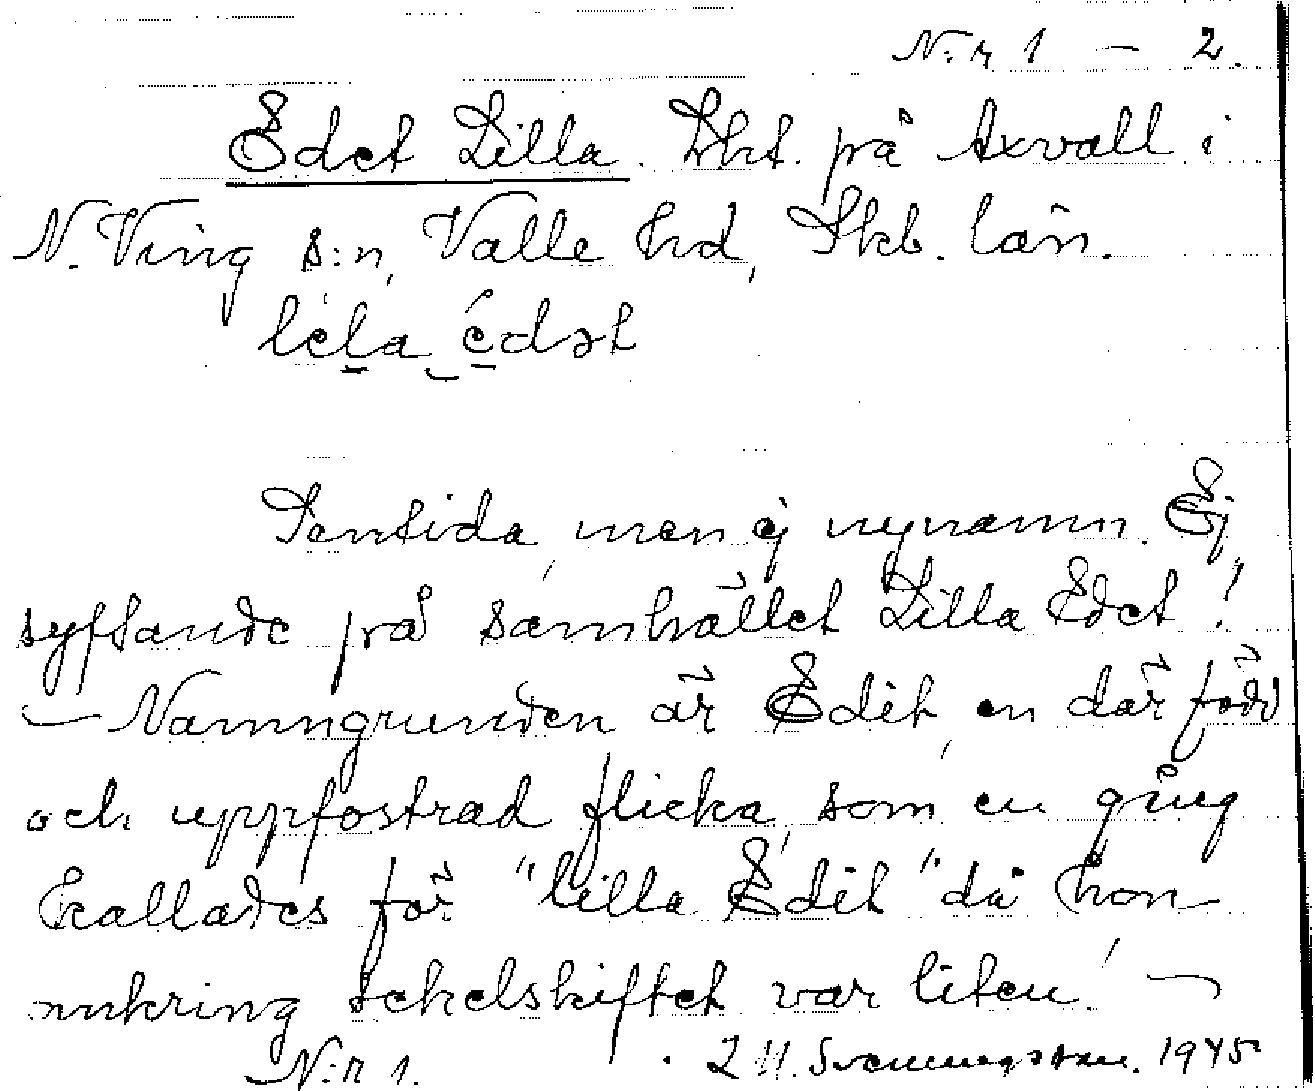 N:r 1 – 2.
Edet Lilla. Lht. på Axvall i
N. Ving s:n, Valle hd, Skb. län.
lela édət
Sentida, men ej nynamn. Ej
syftande på samhället Lilla Edet!
— Namngrunden är Edit, en där född
och uppfostrad flicka, som en gång
kallades för "lilla Edit" då hon
omkring sekelskiftet var liten! —
N:r 1. 1945